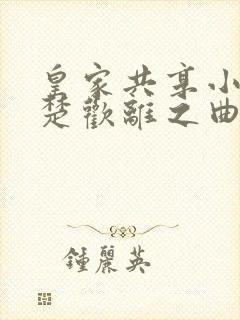 皇家共享小
楚歡離之曲
鍾麗英